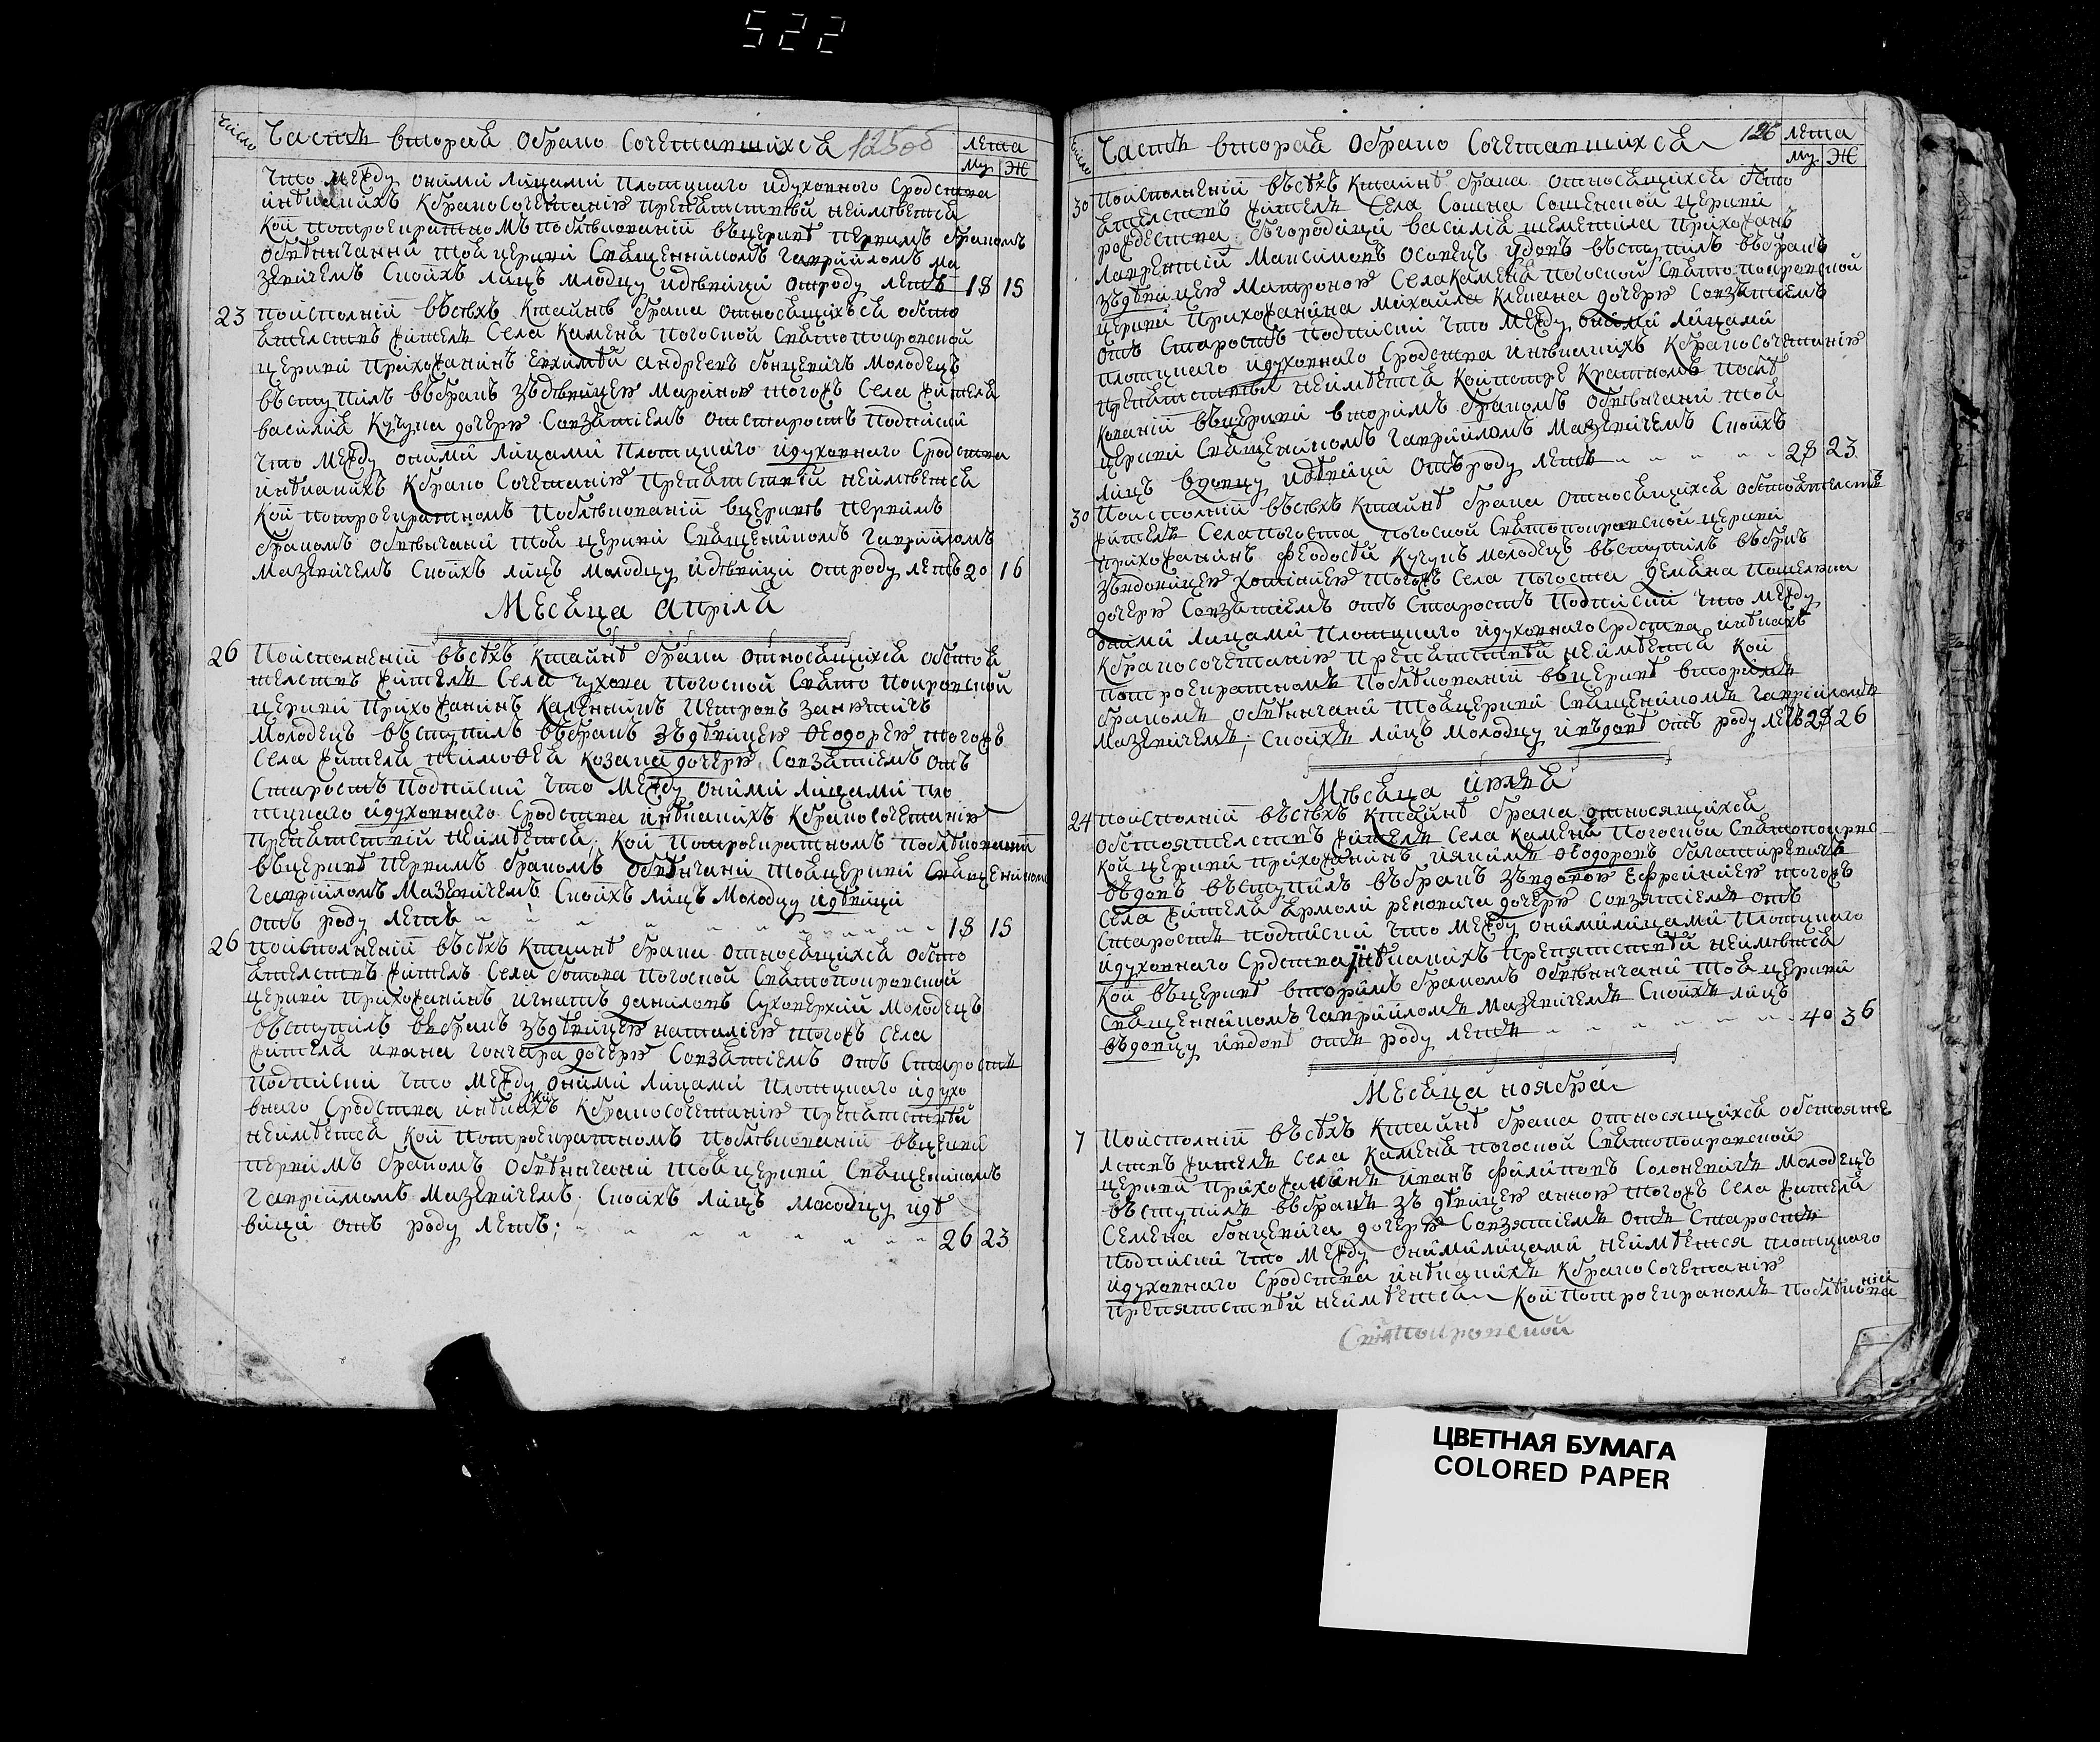 522
число
Часть вторая обрако сочетавшихся 125об
лета
му. Ж
что между оними лицами плотцкаго идуховного сродства
инѣкакихъ кбракосочетанію препятствiя неимѣется
кой потроекратномъ послѣдованiи вцерквѣ первимъ бракомъ
обвѣнчанни тоя церкви священникомъ гаврiиломъ ма
зевичемъ своихъ лицъ молодцу идѣвици отроду летъ 18 15
23 поисполнiи въсѣхъ ктайнѣ брака относящихъся обсто
ятелствъ жителъ села каменя погоской святопокровской
церкви прихожанинъ евхимѣй андреевъ бонцевичъ молодецъ
въступилъ въбракъ зъдѣвицею мариною тогожъ села жителя
василiя кучука дочерю совзятiемъ отстаростъ подписки
что между оними лицами плотцкаго идуховнаго сродства
инѣкакихъ кбрако сочетанiю препятствiй неимѣется
кой потроекратномъ послѣдованiи вцерквѣ первимъ
бракомъ обвѣнчани тоя церкви священикомъ гаврiиломъ
мазевичемъ своихъ лицъ молодцу идѣвици отроду летъ 20 16
Месяца априля
26 поисполненiи въсѣхъ ктайнѣ брака относящихся обстоя
телствъ жителъ села чухова погоской свято покровской
церкви прихожанинъ каленикъ петровъ занкѣвичъ
молодецъ въступилъ въбракъ зъдѣвицею ѳеодорею тогожъ
села жителя тимоѳея козака дочерю совзятiемъ отъ
старостъ подписки что между оними лицами пло
тцкаго идуховнаго сродства инѣкакихъ кбракосочетанiю
препятствiй неимѣется кой потроекратномъ послѣдованiи
въцерквѣ первимъ бракомъ обвѣнчани тояцеркви священикомъ
гаврiиломъ мазевичемъ своихъ лицъ молодцу идѣвици
отъ роду летъ 18 15
26 поисполненiи въсѣхъ ктаинѣ брака относящихся обсто
ятелствъ жителъ села ботова погоской святопокровской
церкви прихожанинъ игнатъ даниловъ суховерхiй молодецъ
въступилъ въбракъ зъдѣвицею наталiею тогожъ села
жителя ивана гончара дочерю совзятiемъ отъ старостъ
подписки что между оними лицами плотцкаго идухо
внаго сродства инѣкакихъ кбракосочетанiю препятствiй
неимѣется кой потроекратномъ послѣдованiи въцеркве
первимъ бракомъ обвѣнчани тояцеркви священикомъ
гаврiиломъ мазевичемъ; своихъ лицъ молодцу идѣ
вици отъ роду летъ; 26 23
число
Часть вторая обрако сочетавшихся 126
лета
му. Ж
30 поисполненiи въсѣхъ ктайнѣ брака относящихся обсто
ятелствъ жителъ села сошна сошенской церкви
рождества богородици василiя шеметила прихожанъ
лаврентiй максимовъ осовецъ удовъ въступилъ въбракъ
зъдѣвицею матроною села каменя погоской святопокровской
церкви прихожанина михайла клепача дочерю совзятiемъ
отъ старостъ подписки что между оними лицами
плотцкаго идуховнаго сродства инѣкакихъ кбракосочетанiю
препятствiя неимѣется койпотрекратномъ послѣ
дованiи въцеркви вторимъ бракомъ обвѣнчани тоя
церкви священикомъ гаврiиломъ мазевичемъ своихъ
лицъ вдовцу идѣвици отъроду летъ 28 23
30 поисполнiи въсѣхъ ктайнѣ брака относящихся обстоятелствъ
жителъ селапогоста погоской святопокровской церкви
прихожанинъ феодосiй кучукъ молодецъ въступилъ въбракъ
зъвдовицею хотiнiею тогожъ села погоста демяна
дочерю совзятiемъ отъ старостъ подписки что между
оними лицами плотцкаго идуховнаго срдства инѣкакъ
кбракосочетанiю препятствiй неимѣется кой
потроекратномъ послѣдованiи въцерквѣ вторимъ
бракомъ обвѣнчани тояцеркви священикомъ гаврiиломъ
мазевичемъ; своихъ лицъ молодцу ивъдовѣ отъ роду летъ 28 26
Мѣсяца июля
24 поисполнiи въсѣхъ ктайнѣ брака относящихся
обстоятелствъ жителъ села каменя погоской святопокровс
кой церкви прихожанинъ иякимъ ѳеодоровъ багатиревичъ
въдовъ въступилъ въбракъ зъвдовою ефросинiею тогожъ
села жителя ярмоли реновича дочерю совзятiемъ отъ
старостъ подписки что между онимилицами плотцкаго
идуховнаго срдства инѣкакихъ препятствiй неимѣется
кой въцерквѣ вторимъ бракомъ обвѣнчани тоя церкви
священникомъ гаврiиломъ мазевичемъ своихъ лицъ
въдовцу ивдовѣ отъ роду летъ 40 36
Месяца ноября
7 поисполнiи въсѣхъ ктайнѣ брака относящихся обстояте
лствъ жителъ села каменя погоской святопокровской
церкви прихожанинъ иванъ филиповъ солоневичъ молодецъ
въступилъ въбракъ зъ дѣвицею анною тогожъ села жителя
семена бонцевича дочерю совзятiемъ отъ старостъ
подписки что между онимилицами неимѣется плотцкаго
идуховнаго сродства инѣкакихъ кбракосочетанiю
препятствiй неимѣется кой потроекраномъ послѣдованiи
Святопокровской
ЦВЕТНАЯ БУМАГА
COLORED PAPER